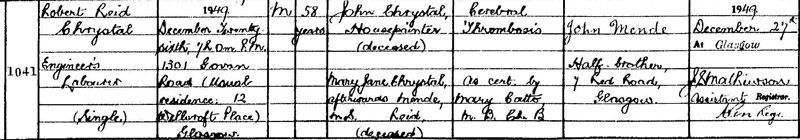 1041
Robert Reid
Chrystal
Engineer's
Labourer
(Single)
1949
December Twenty
sixth, 7h. 0m. P.M.
1301 Govan
Road (Usual
residence: 12
Wellcroft Place)
Glasgow.
M
58
years
John Chrystal,
Housepainter
(deceased)
Mary Jane Chrystal,
afterwards Mende,
m.s. Reid,
(deceased)
Cerebral
Thrombosis
As cert. by
Mary Catto
M. B. Ch. B
John Mende
Half-brother,
7 Red Road,
Glasgow.
1949
December 27th
At Glasgow
J S Mathieson
Assistant Registrar.